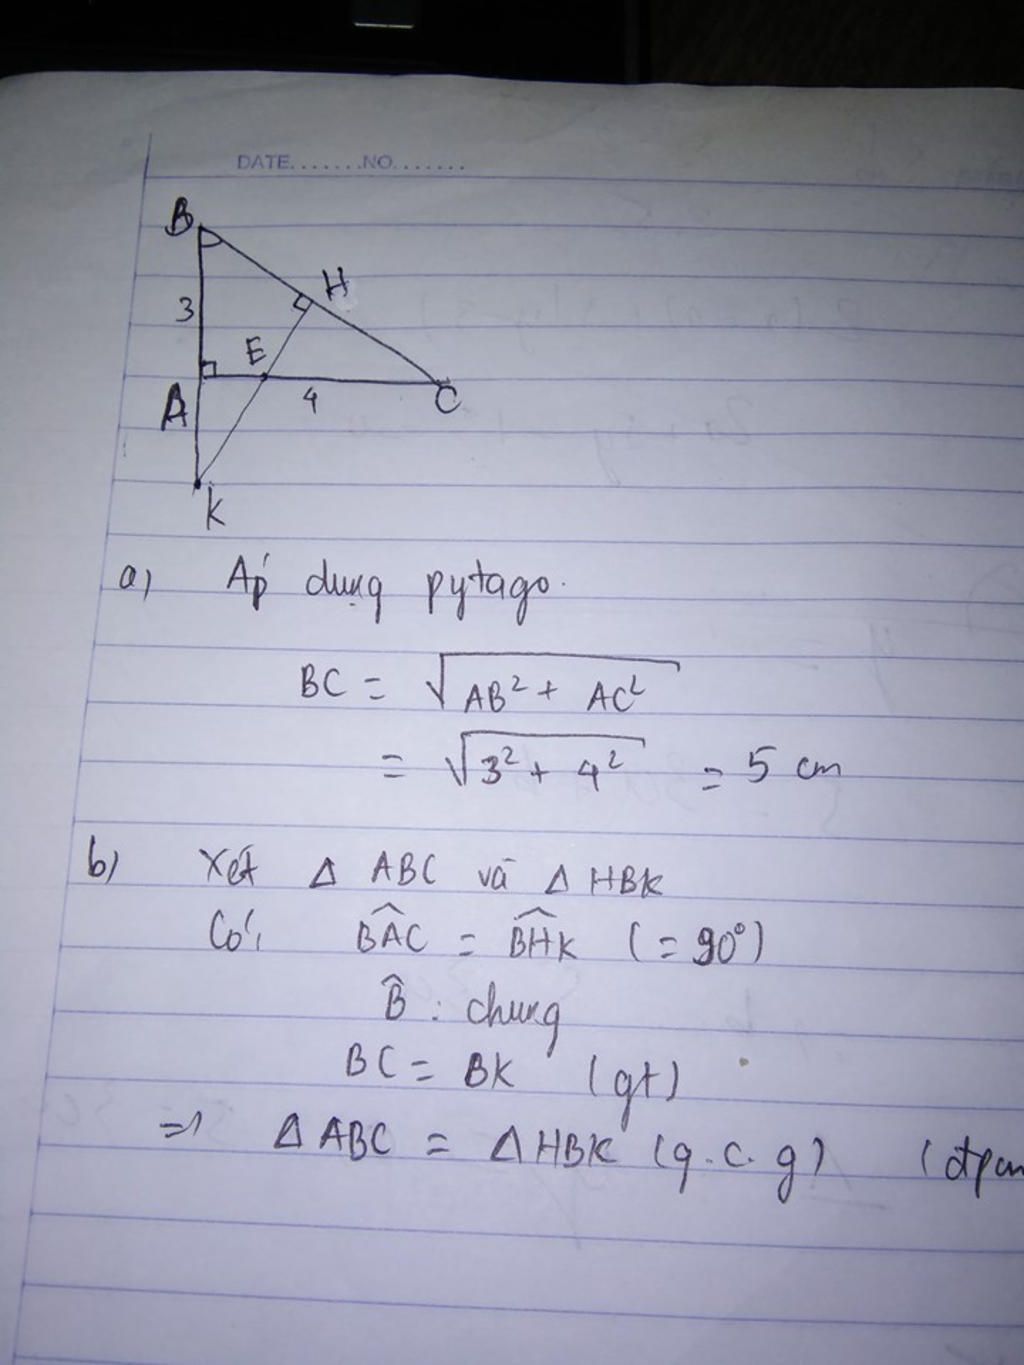 DATE.......NO.......
B
H
3
E
A
4
C
K
a) Áp dụng pytago.
BC = √AB² + AC²
= √3² + 4² = 5 cm
b) Xét Δ ABC và Δ HBK
Có: BAC^ = BHK^ (= 90°)
B^ : chung
BC = BK (gt)
=> Δ ABC = Δ HBK (g.c.g) (đpcm